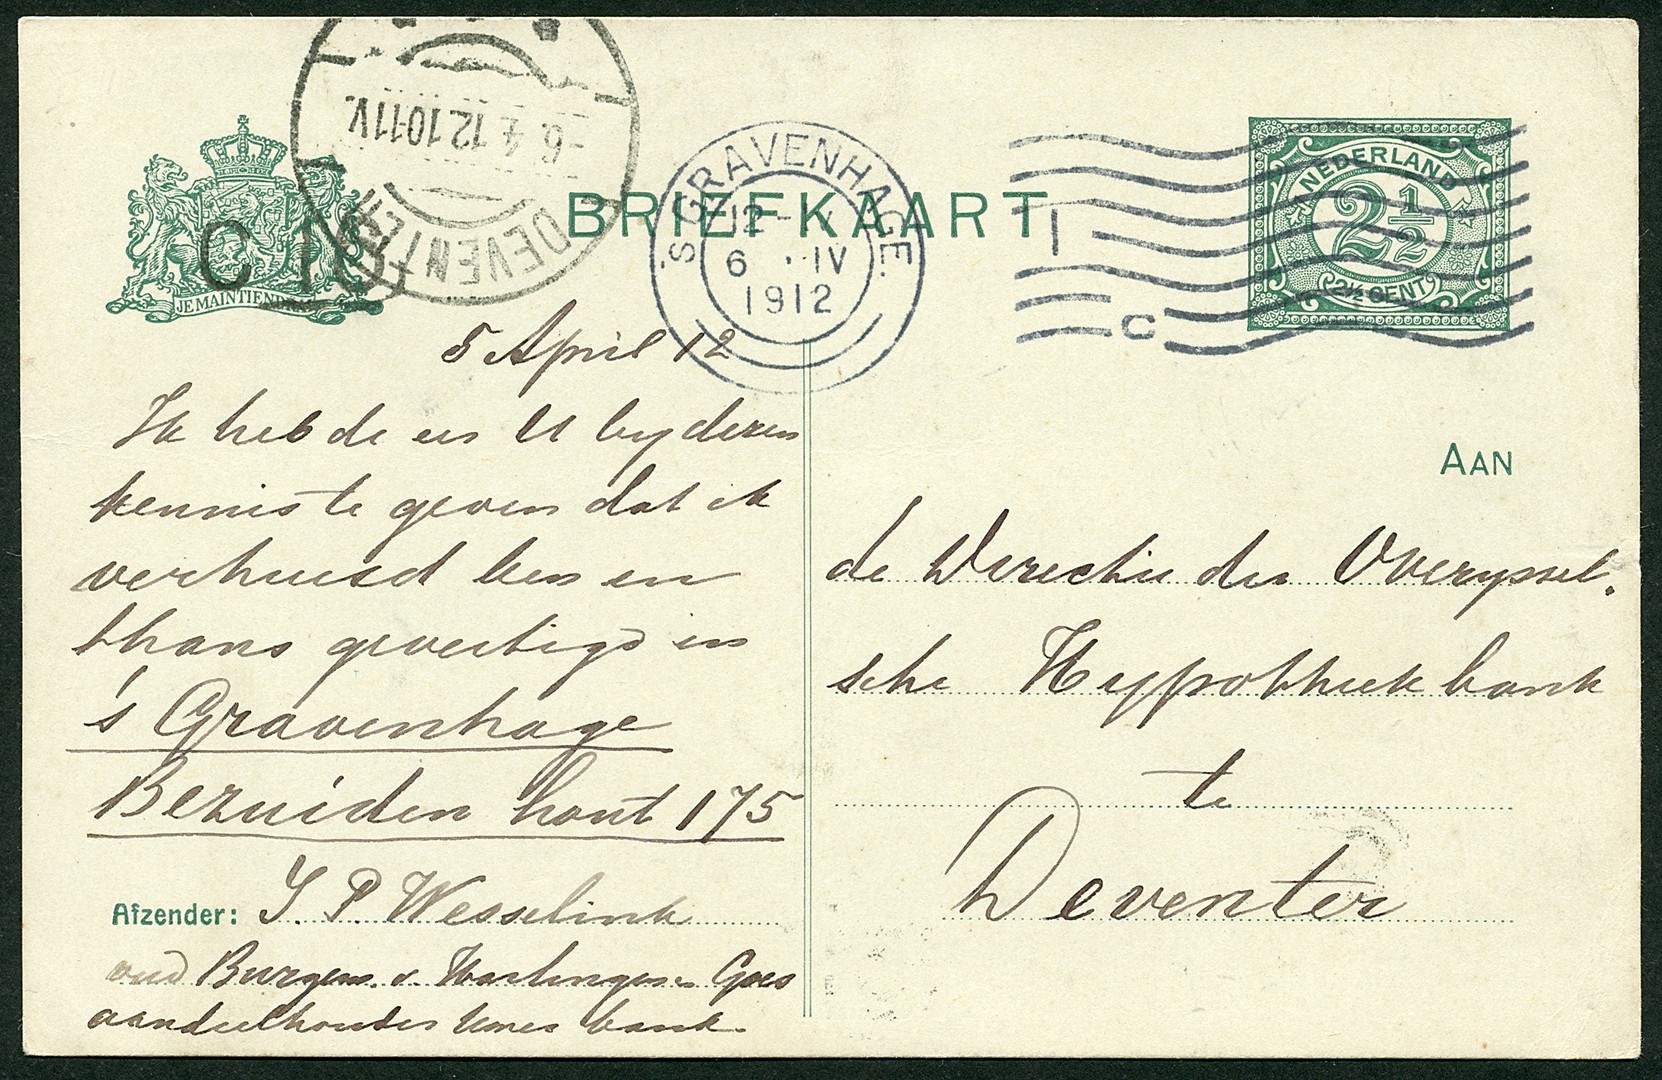 6.4.12.10-11V.
DEVENTER
'S GRAVENHAGE.
12
6 IV
1912
C
BRIEFKAART
NEDERLAND
2½
2½ CENT
JE MAINTIENDRAI
C 10
5 April 12
Ik heb de eer U by dezen
kennis te geven dat ik
verhuisd ben en
thans gevestigd in
's Gravenhage
Bezuidenhout 175
Afzender: J. P. Wesselink
oud Burgem. v. Harlingen Goes
aandeelhouder Uwer bank.
AAN
de Directie der Overyssel.
sche Hypotheekbank
te
Deventer